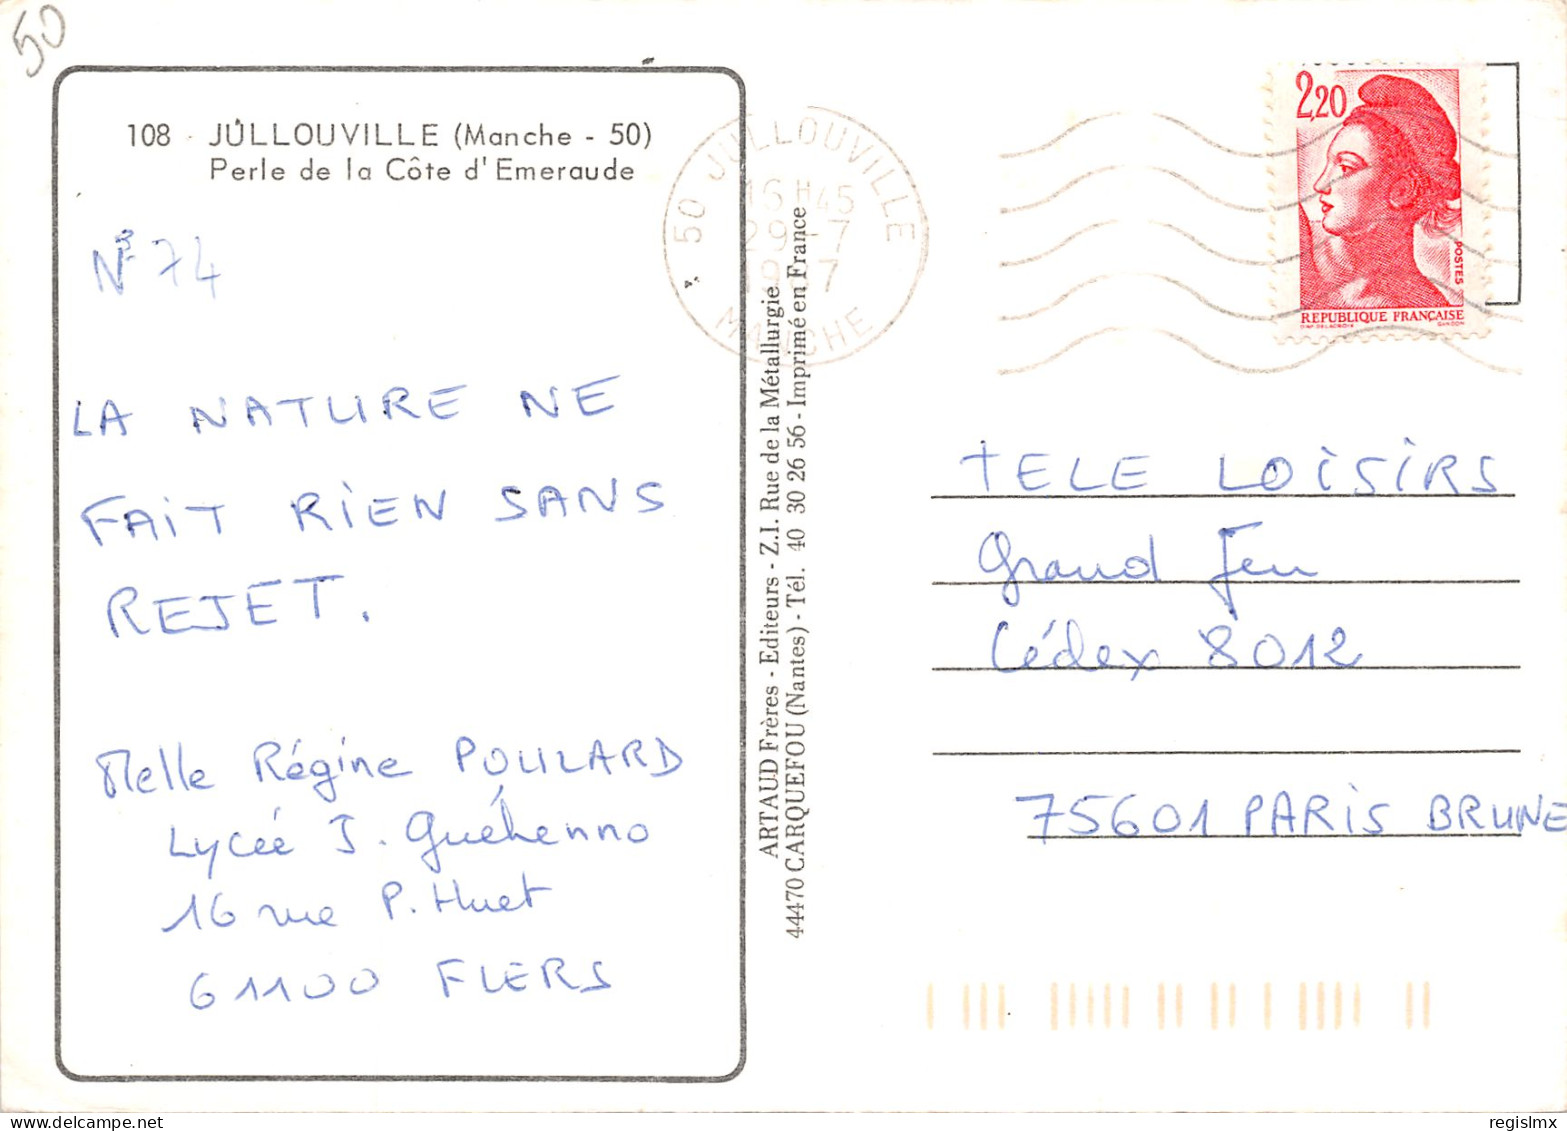 50
108 - JULLOUVILLE (Manche - 50)
Perle de la Côte d'Emeraude
N° 74
LA NATURE NE
FAIT RIEN SANS
REJET.
Melle Régine POULARD
Lycée J. Guéhenno
16 rue P. Huet
61100 FLERS
ARTAUD Frères - Editeurs - Z.I. Rue de la Métallurgie
44470 CARQUEFOU (Nantes) - Tél. 40 30 26 56 - Imprimé en France
50 JULLOUVILLE
16 H 45
29-7
MANCHE
2,20
POSTES
REPUBLIQUE FRANÇAISE
D'AP. DELACROIX GANDON
TELE LOISIRS
Grand Jeu
Cédex 8012
75601 PARIS BRUNE
regislmx